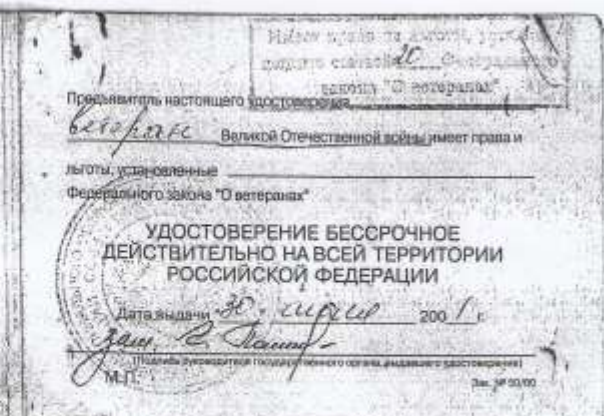 Имеет право на льготы, 
статьёй 20 Федерального
закона "О ветеранах"
Предъявитель настоящего удостоверения
Великой Отечественной войны имеет права и
льготы, установленные
Федерального закона "О ветеранах"
УДОСТОВЕРЕНИЕ БЕССРОЧНОЕ
ДЕЙСТВИТЕЛЬНО НА ВСЕЙ ТЕРРИТОРИИ
РОССИЙСКОЙ ФЕДЕРАЦИИ
Дата выдачи "30" 2001 г.
зам.
(Подпись руководителя государственного органа, выдавшего удостоверение)
М.П.
Зак. № 50/00